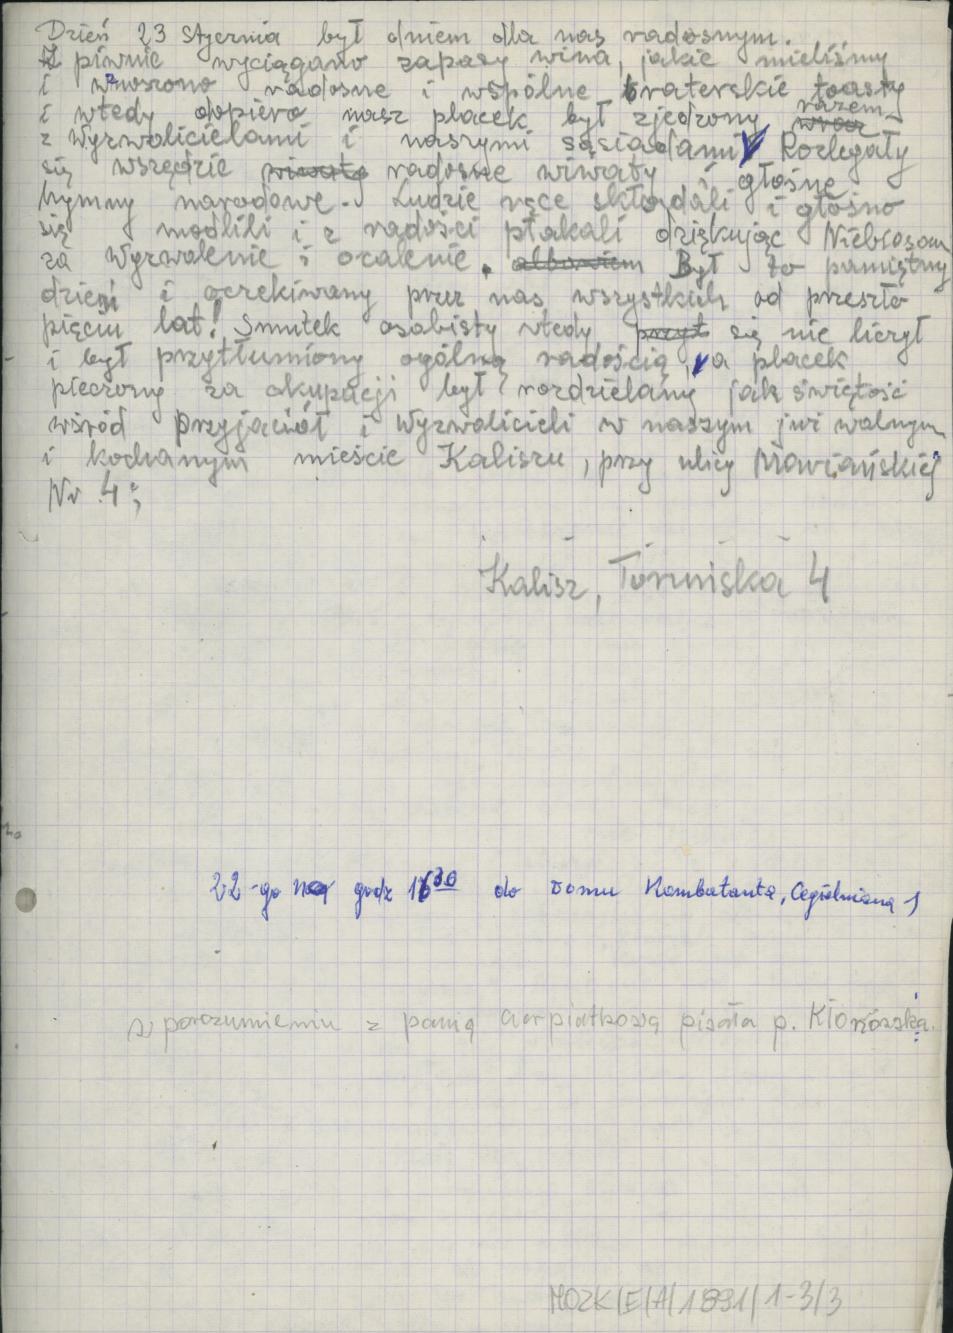 Dzień 23 stycznia był dniem dla nas radosnym.
Z piwnic wyciągano zapasy wina, jakie mieliśmy
i wznoszono radosne i wspólne braterskie toasty
i wtedy dopiero nasz placek był zjedzony razem
z Wyzwolicielami i naszymi sąsiadami Rozlegały
się wszędzie wiwaty radosne wiwaty i głośne
hymny narodowe. Ludzie ręce składali i głośno
się modlili i z radości płakali dziękując Niebiosom
za Wyzwolenie i ocalenie. albowiem Był to pamiętny
dzień i oczekiwany przez nas wszystkich od przeszło
pięciu lat! Smutek osobisty wtedy się nie liczył
i był przytłumiony ogólną radością, a placek
pieczony za okupacji był rozdzielany jak świętość
wśród przyjaciół i Wyzwolicieli w naszym już wolnym
i kochanym mieście Kaliszu, przy ulicy Mariańskiej
Nr 4;
Kalisz, Toruńska 4
22-go godz 16 30 do Domu Kombatanta, Cegielniana 1
w porozumieniu z panią pisała p.
MOZK/E/A/1891/1-3/3